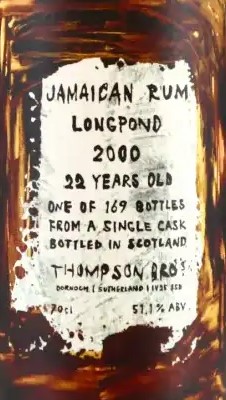 JAMAICAN RUM
LONGPOND
2000
22 YEARS OLD
ONE OF 169 BOTTLES
FROM A SINGLE CASK
BOTTLED IN SCOTLAND
THOMPSON BRO'S
DORNOCH | SUTHERLAND | IV25 3SD
70cl 51,1% ABV